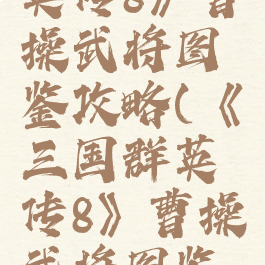 英传8》曹
操武将图
鉴攻略(《
三国群英
传8》曹操
武将图鉴